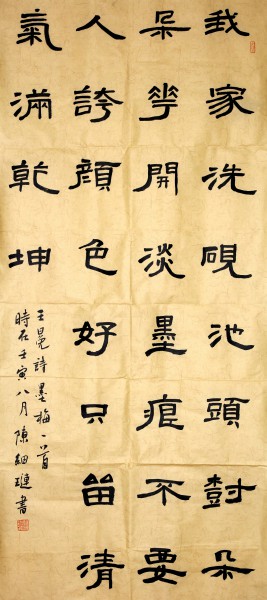 我家洗硯池頭樹朵
朵花開淡墨痕不要
人誇顏色好只留清
氣滿乾坤
王冕詩墨梅一首
時在壬寅八月陳細璉書